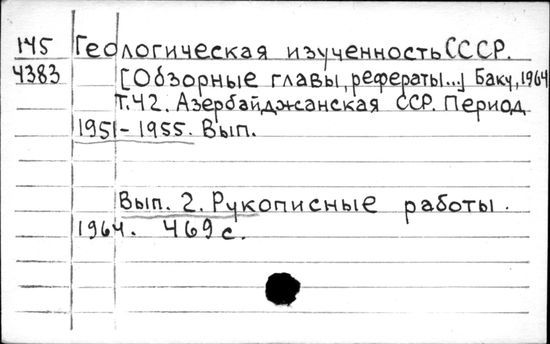 145 Геологическая изученность СССР.
4383 [Обзорные главы, рефераты...] Баку, 1964
Т.42. Азербайджанская ССР. Период
1951-1955. Вып.
Вып. 2. Рукописные работы.
1964. 469 с.